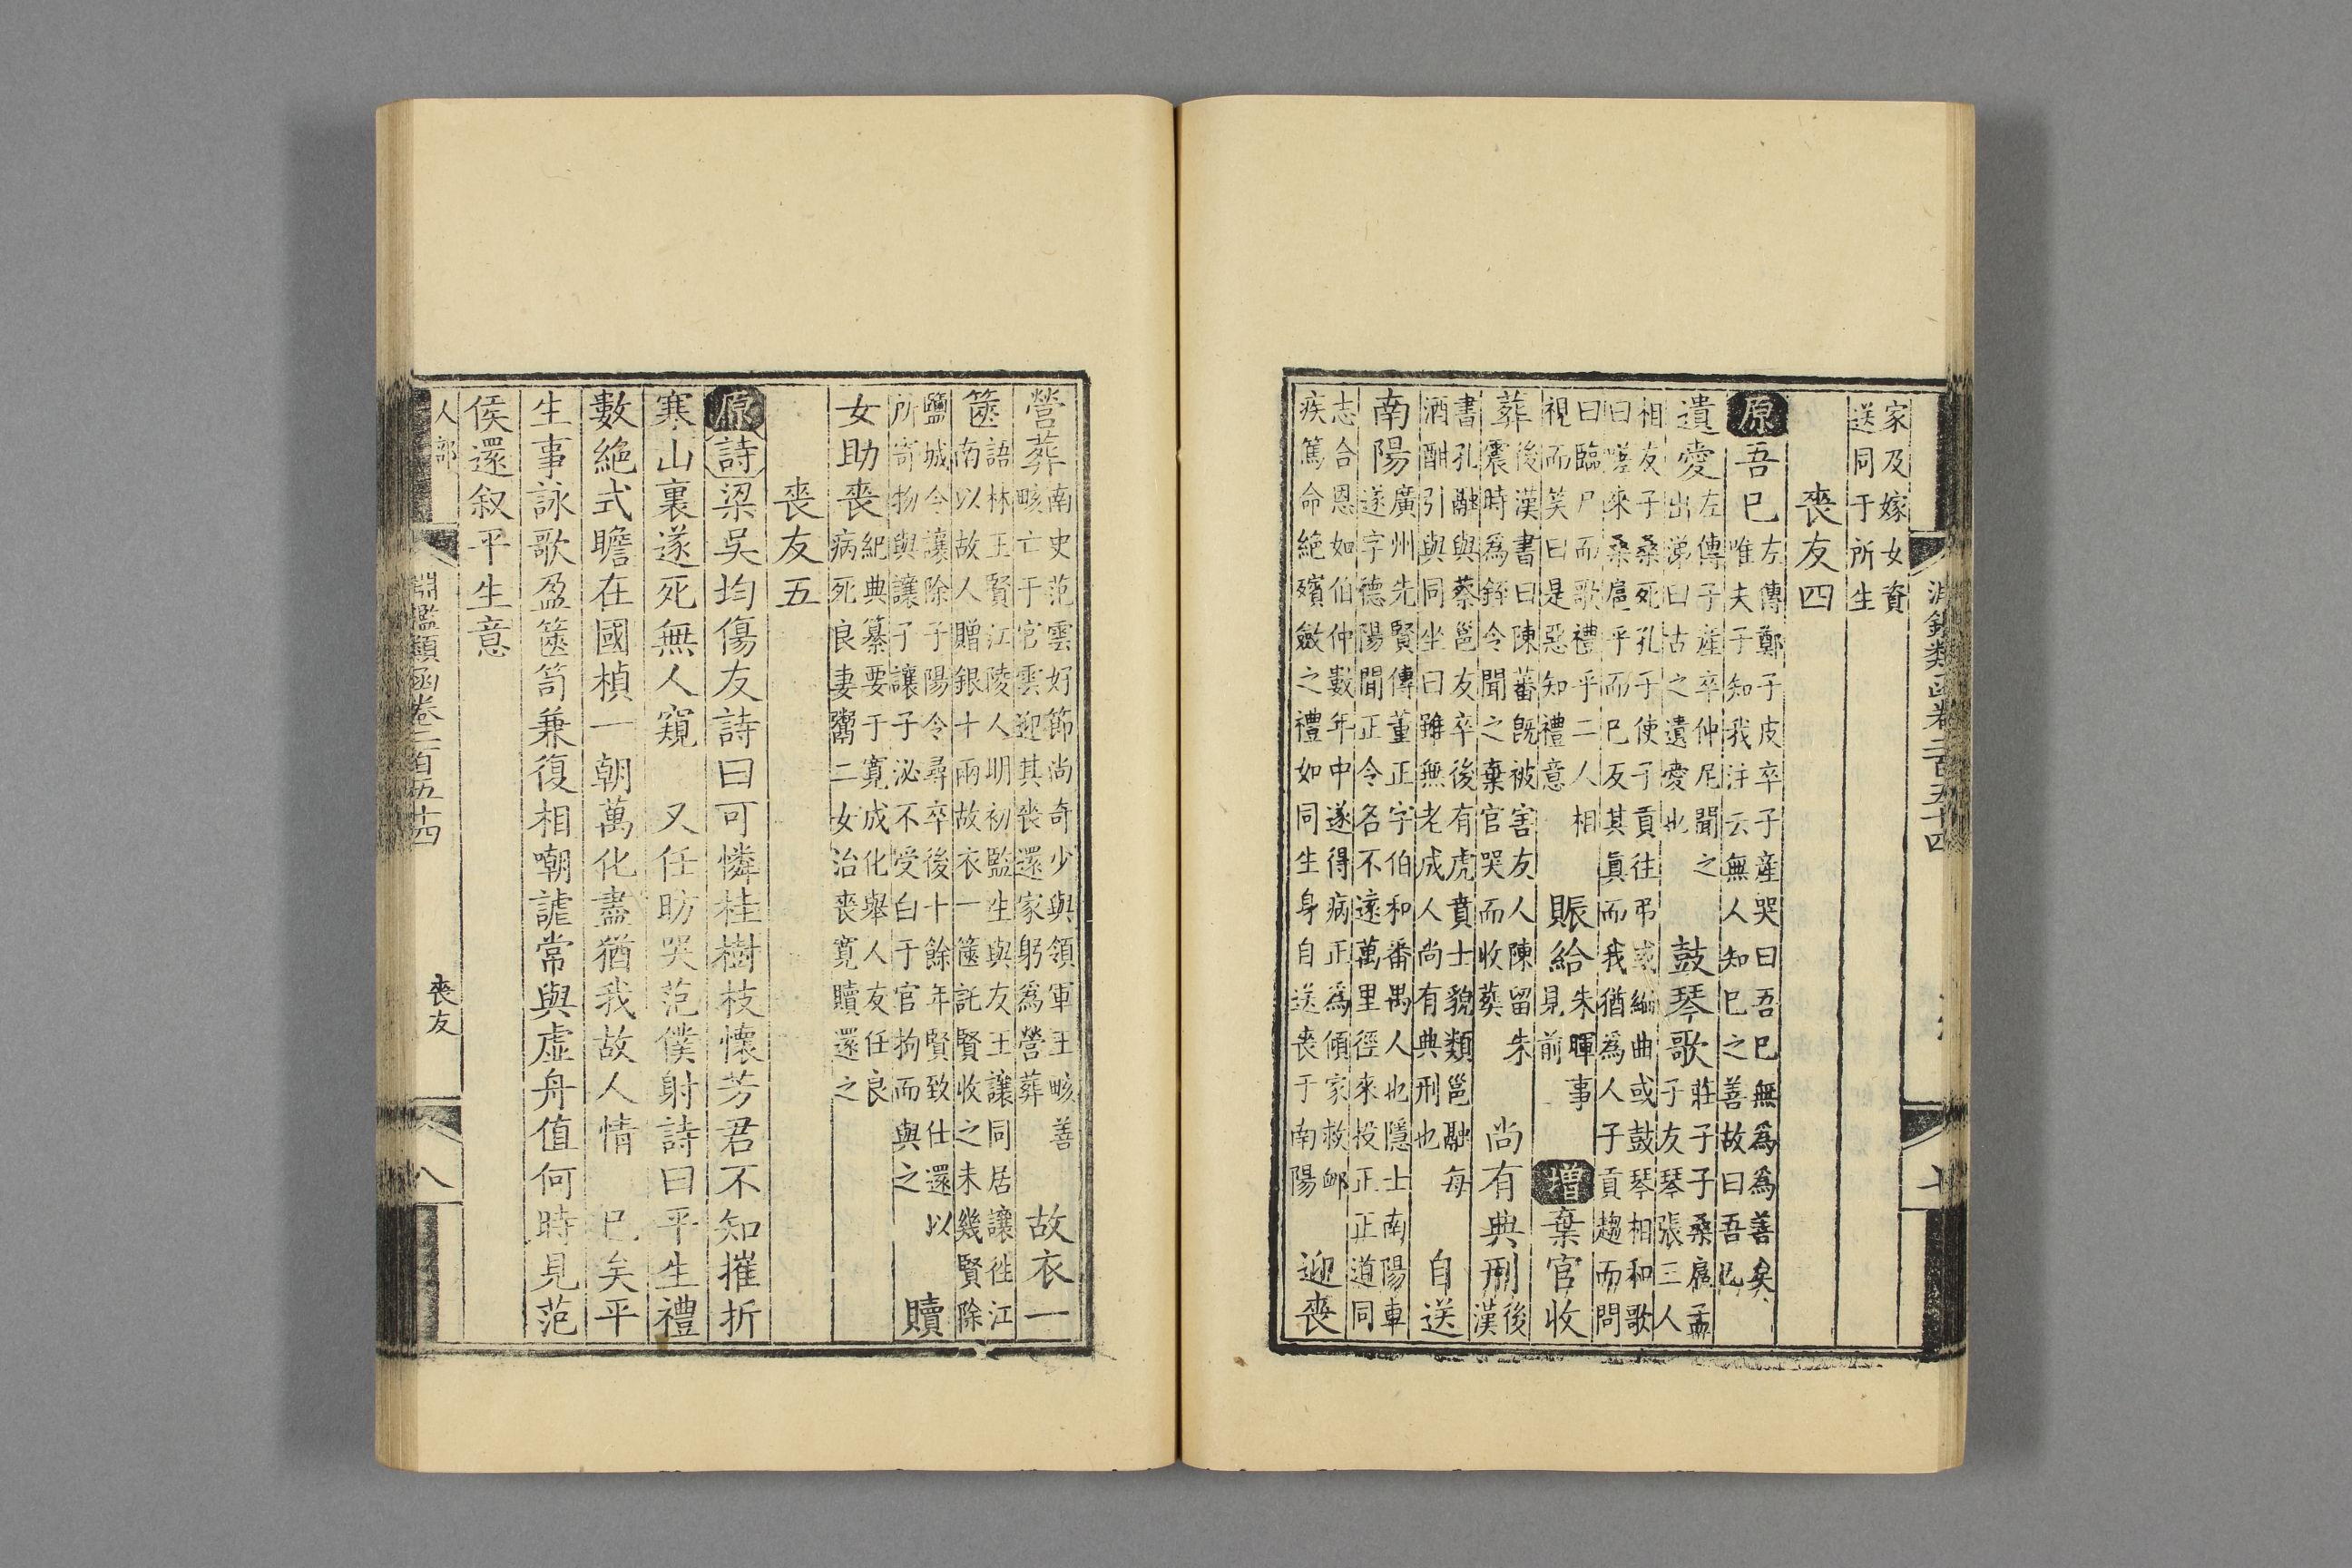 淵鑑類函卷二百五十四 七
家及嫁女資
送同于所生
喪友四
原吾已左傳鄭子皮卒子產哭曰吾已無爲爲善矣
唯夫子知我注云無人知已之善故曰吾已
遺愛左傳子產卒仲尼聞之
出涕曰古之遺愛也
鼓琴歌莊子子桑扈孟
子友琴張三人
相友子桑死孔子使子貢往弔或編曲或鼓琴相和歌
曰嗟來桑扈乎而已反其眞而我猶爲人子貢趨而問
曰臨尸而歌禮乎二人相
視而笑曰是惡知禮意
賑給朱暉事
見前
增棄官收
葬後漢書曰陳蕃旣被害友人陳留朱
震時爲銍令聞之棄官哭而收葬
尚有典刑後
漢
書孔融與蔡邕友卒後有虎賁士貌類邕融每
酒酣引與同坐曰雖無老成人尚有典刑也
自送
南陽廣州先賢傳董正字伯和番禺人也隱士南陽車
遂字德陽聞正令名不遠萬里徑來投正正道同
志合恩如伯仲數年中遂得病正爲傾家救卹
疾篤命絕殯斂之禮如同生身自送喪于南陽
迎喪
營葬南史范雲好節尚奇少與領軍王畡善
畡亡于官雲迎其喪還家躬爲營葬
故衣一
篋語林王賢江陵人明初監生與友王讓同居讓徃江
南以故人贈銀十兩故衣一篋託賢收之未幾賢除
鹽城令讓除子陽令尋卒後十餘年賢致仕還以
所寄物與讓子讓子泌不受白于官拘而與之
贖
女助喪紀典纂要于寛成化舉人友任良
病死良妻鬻二女治喪寛贖還之
喪友五
原詩梁吳均傷友詩曰可憐桂樹枝懷芳君不知摧折
寒山裏遂死無人窺 又任昉哭范僕射詩曰平生禮
數絕式瞻在國楨一朝萬化盡猶我故人情 已矣平
生事詠歌盈篋笥兼復相嘲謔常與虛舟值何時見范
侯還叙平生意
人部 淵鑑類函卷二百五十四 喪友 八